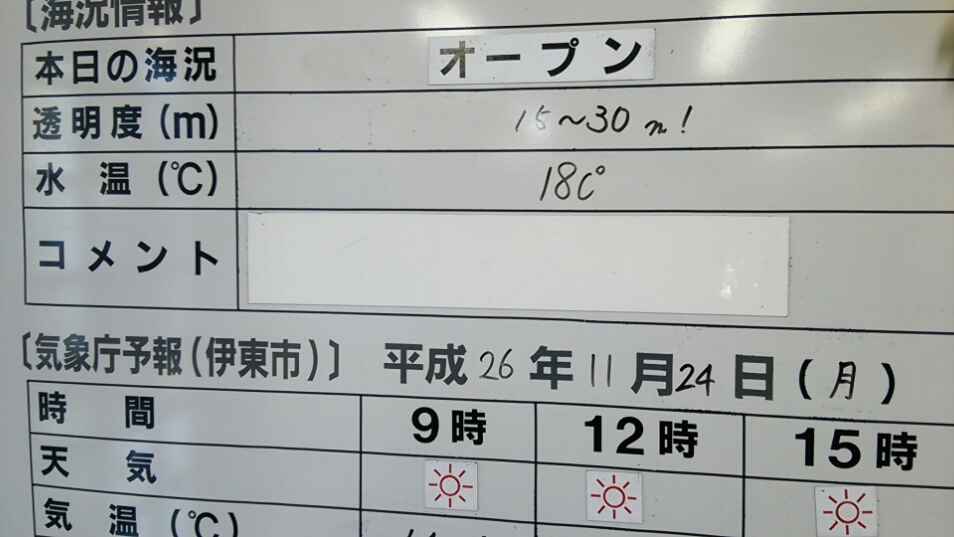 〔海況情報〕
本日の海況 オープン
透明度(m) 15~30m!
水温(℃) 18℃
コメント
〔気象庁予報(伊東市)〕 平成26年11月24日(月)
時間 9時 12時 15時
天気
気温(℃)